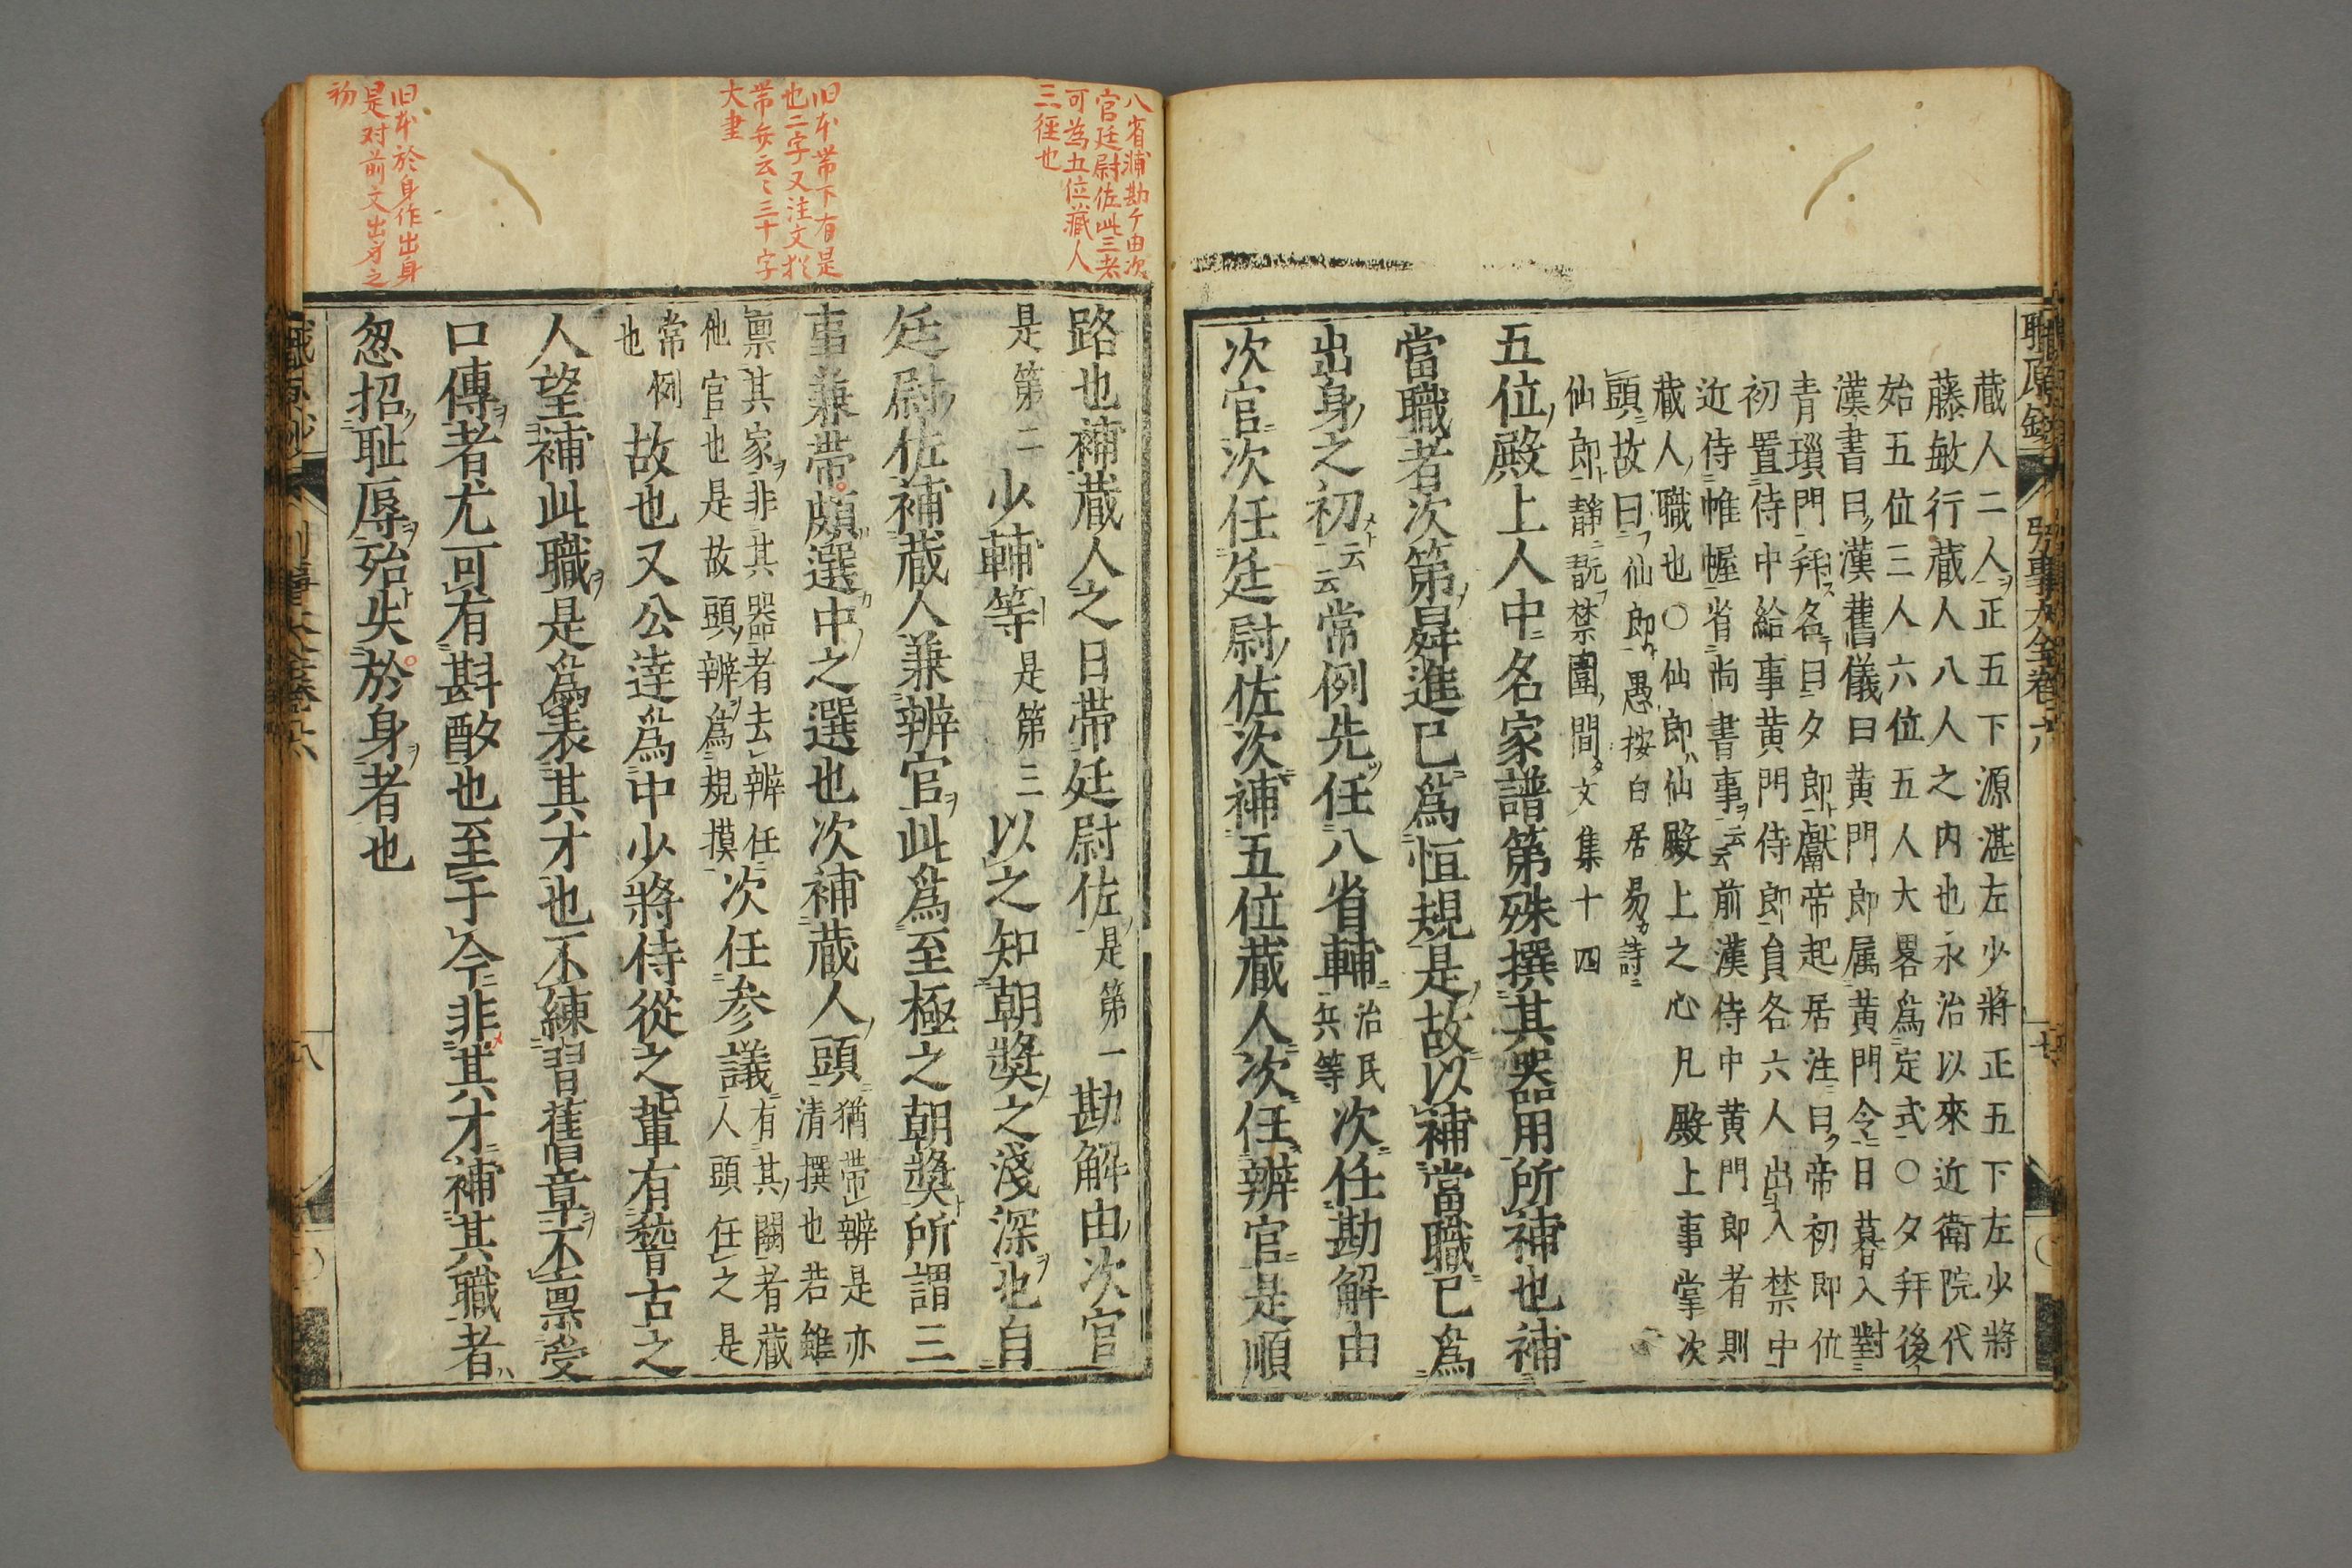 蔵人二人正五下源湛左少將正五下左少將
藤敏行蔵人八人之内也永治以來近衛院代
始五位三人六位五人大畧爲定式○夕拜後
漢書曰漢舊儀曰黄門郎属黄門令日暮入對
青瑣門拜名曰夕郎獻帝起居注曰帝初即位
初置侍中給事黄門侍郎員各六人出入禁中
近侍帷幄省尚書事云云前漢侍中黄門郎者則
蔵人職也○仙郎仙殿上之心凡殿上事掌次
頭故曰仙郎愚按白居易詩
仙郎静翫禁闈間文集十四
五位殿上人中名家譜第殊撰其器用所補也補
當職者次第昇進已爲恒規是故以補當職已爲
出身之初云云常例先任八省輔治民兵等次任勘解由
次官次任廷尉佐次補五位蔵人次任辨官是順
路也補蔵人之日帯廷尉佐是第一勘解由次官
是第二少輔等是第三以之知朝奬之淺深也自
廷尉佐補蔵人兼辨官此爲至極之朝奬所謂三
事兼帯頗選中之選也次補蔵人頭猶帯辨是亦清撰也若雖
禀其家非其器者去辨任他官也是故頭辨爲規摸次任参議有其闕者蔵人頭任之是
常例也故也又公達爲中少將侍從之輩有嵆古之
人望補此職是爲表其才也不練習舊章不禀受
口傳者尤可有斟酌也至于今非其才補其職者
忽招耻辱殆失於身者也
八省浦勘ケ由次
官廷尉佐此三者
可為五位蔵人
三徑也
旧本帯下有是
也二字又注文猶
帯弁云々三十字
大書
旧本於身作出身
是対前文出身之
初